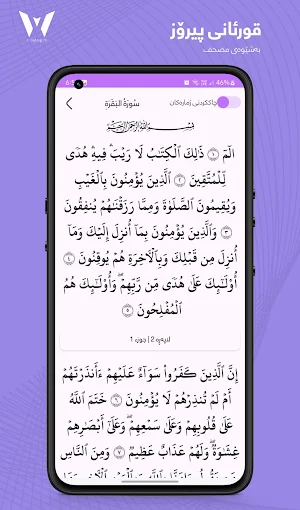 قورئانی پیرۆز
بەشێوەی مصحف
46%
چاککردنی ژمارەکان
سُورَةُ البَقَرَة
بِسْمِ ٱللَّهِ ٱلرَّحْمَٰنِ ٱلرَّحِيمِ
الٓمٓ ١ ذَٰلِكَ ٱلْكِتَٰبُ لَا رَيْبَ ۛ فِيهِ ۛ هُدًى
لِّلْمُتَّقِينَ ٢ ٱلَّذِينَ يُؤْمِنُونَ بِٱلْغَيْبِ
وَيُقِيمُونَ ٱلصَّلَوٰةَ وَمِمَّا رَزَقْنَٰهُمْ يُنفِقُونَ
٣ وَٱلَّذِينَ يُؤْمِنُونَ بِمَآ أُنزِلَ إِلَيْكَ وَمَآ
أُنزِلَ مِن قَبْلِكَ وَبِٱلْءَاخِرَةِ هُمْ يُوقِنُونَ ٤
أُو۟لَٰٓئِكَ عَلَىٰ هُدًى مِّن رَّبِّهِمْ ۖ وَأُو۟لَٰٓئِكَ هُمُ
ٱلْمُفْلِحُونَ ٥
لاپەڕە 2 | جوزء 1
إِنَّ ٱلَّذِينَ كَفَرُوا۟ سَوَآءٌ عَلَيْهِمْ ءَأَنذَرْتَهُمْ
أَمْ لَمْ تُنذِرْهُمْ لَا يُؤْمِنُونَ ٦ خَتَمَ ٱللَّهُ
عَلَىٰ قُلُوبِهِمْ وَعَلَىٰ سَمْعِهِمْ ۖ وَعَلَىٰٓ أَبْصَٰرِهِمْ
غِشَٰوَةٌ ۖ وَلَهُمْ عَذَابٌ عَظِيمٌ ٧ وَمِنَ ٱلنَّاسِ